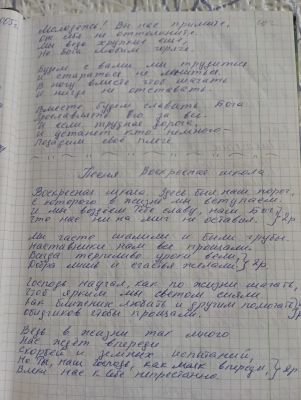 Молодежь! Вы нас примите,
От себя не оттолкните.
Мы ведь хрупкие еще,
Но Бога любим горячо.
Будем с вами мы трудиться
И стараться не лениться.
В ногу вместе чтоб шагать
И нигде не отставать.
Вместе будем славить Бога
Прославлять Его за все.
И если, трудная дорога,
И устанет кто немного,
Подадим свое плечо.
Песня Воскресная школа
Воскресная школа. Здесь был наш порог,
с которого в жизнь мы вступаем.
И мы воздаем Тебе славу, наш Бог,
Что нас ни на миг не оставил. } 2р.
Мы часто шалили и были грубы.
Наставники нам все прощали.
Всегда терпеливо уроки вели
Добра лишь и счастья желали } 2р.
Господь научал, как по жизни шагать,
Чтоб ярким мы светом сияли
Как ближних любить и другим помогать
Обидчиков чтобы прощали. } 2р.
Ведь в жизни так много
Нас ждет впереди
Скорбей и земных испытаний,
Но Ты, наш Господь, как маяк впереди,
Влеки нас к себе непрестанно. } 2р.